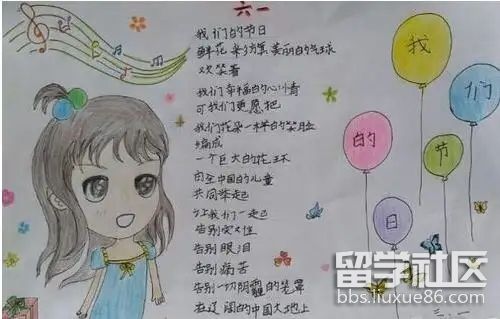 六一
我们的节日
鲜花 彩纷 美丽的气球
欢笑着
我们幸福的心情
可我们更愿把
我们花朵一样的笑脸
编成
一个巨大的花环
由全中国的儿童
共同举起
让我们一起
告别灾难
告别眼泪
告别痛苦
告别一切阴霾的笼罩
在辽阔的中国大地上
我
们
的
节
日
三.一
留学社区
bbs.liuxue86.com